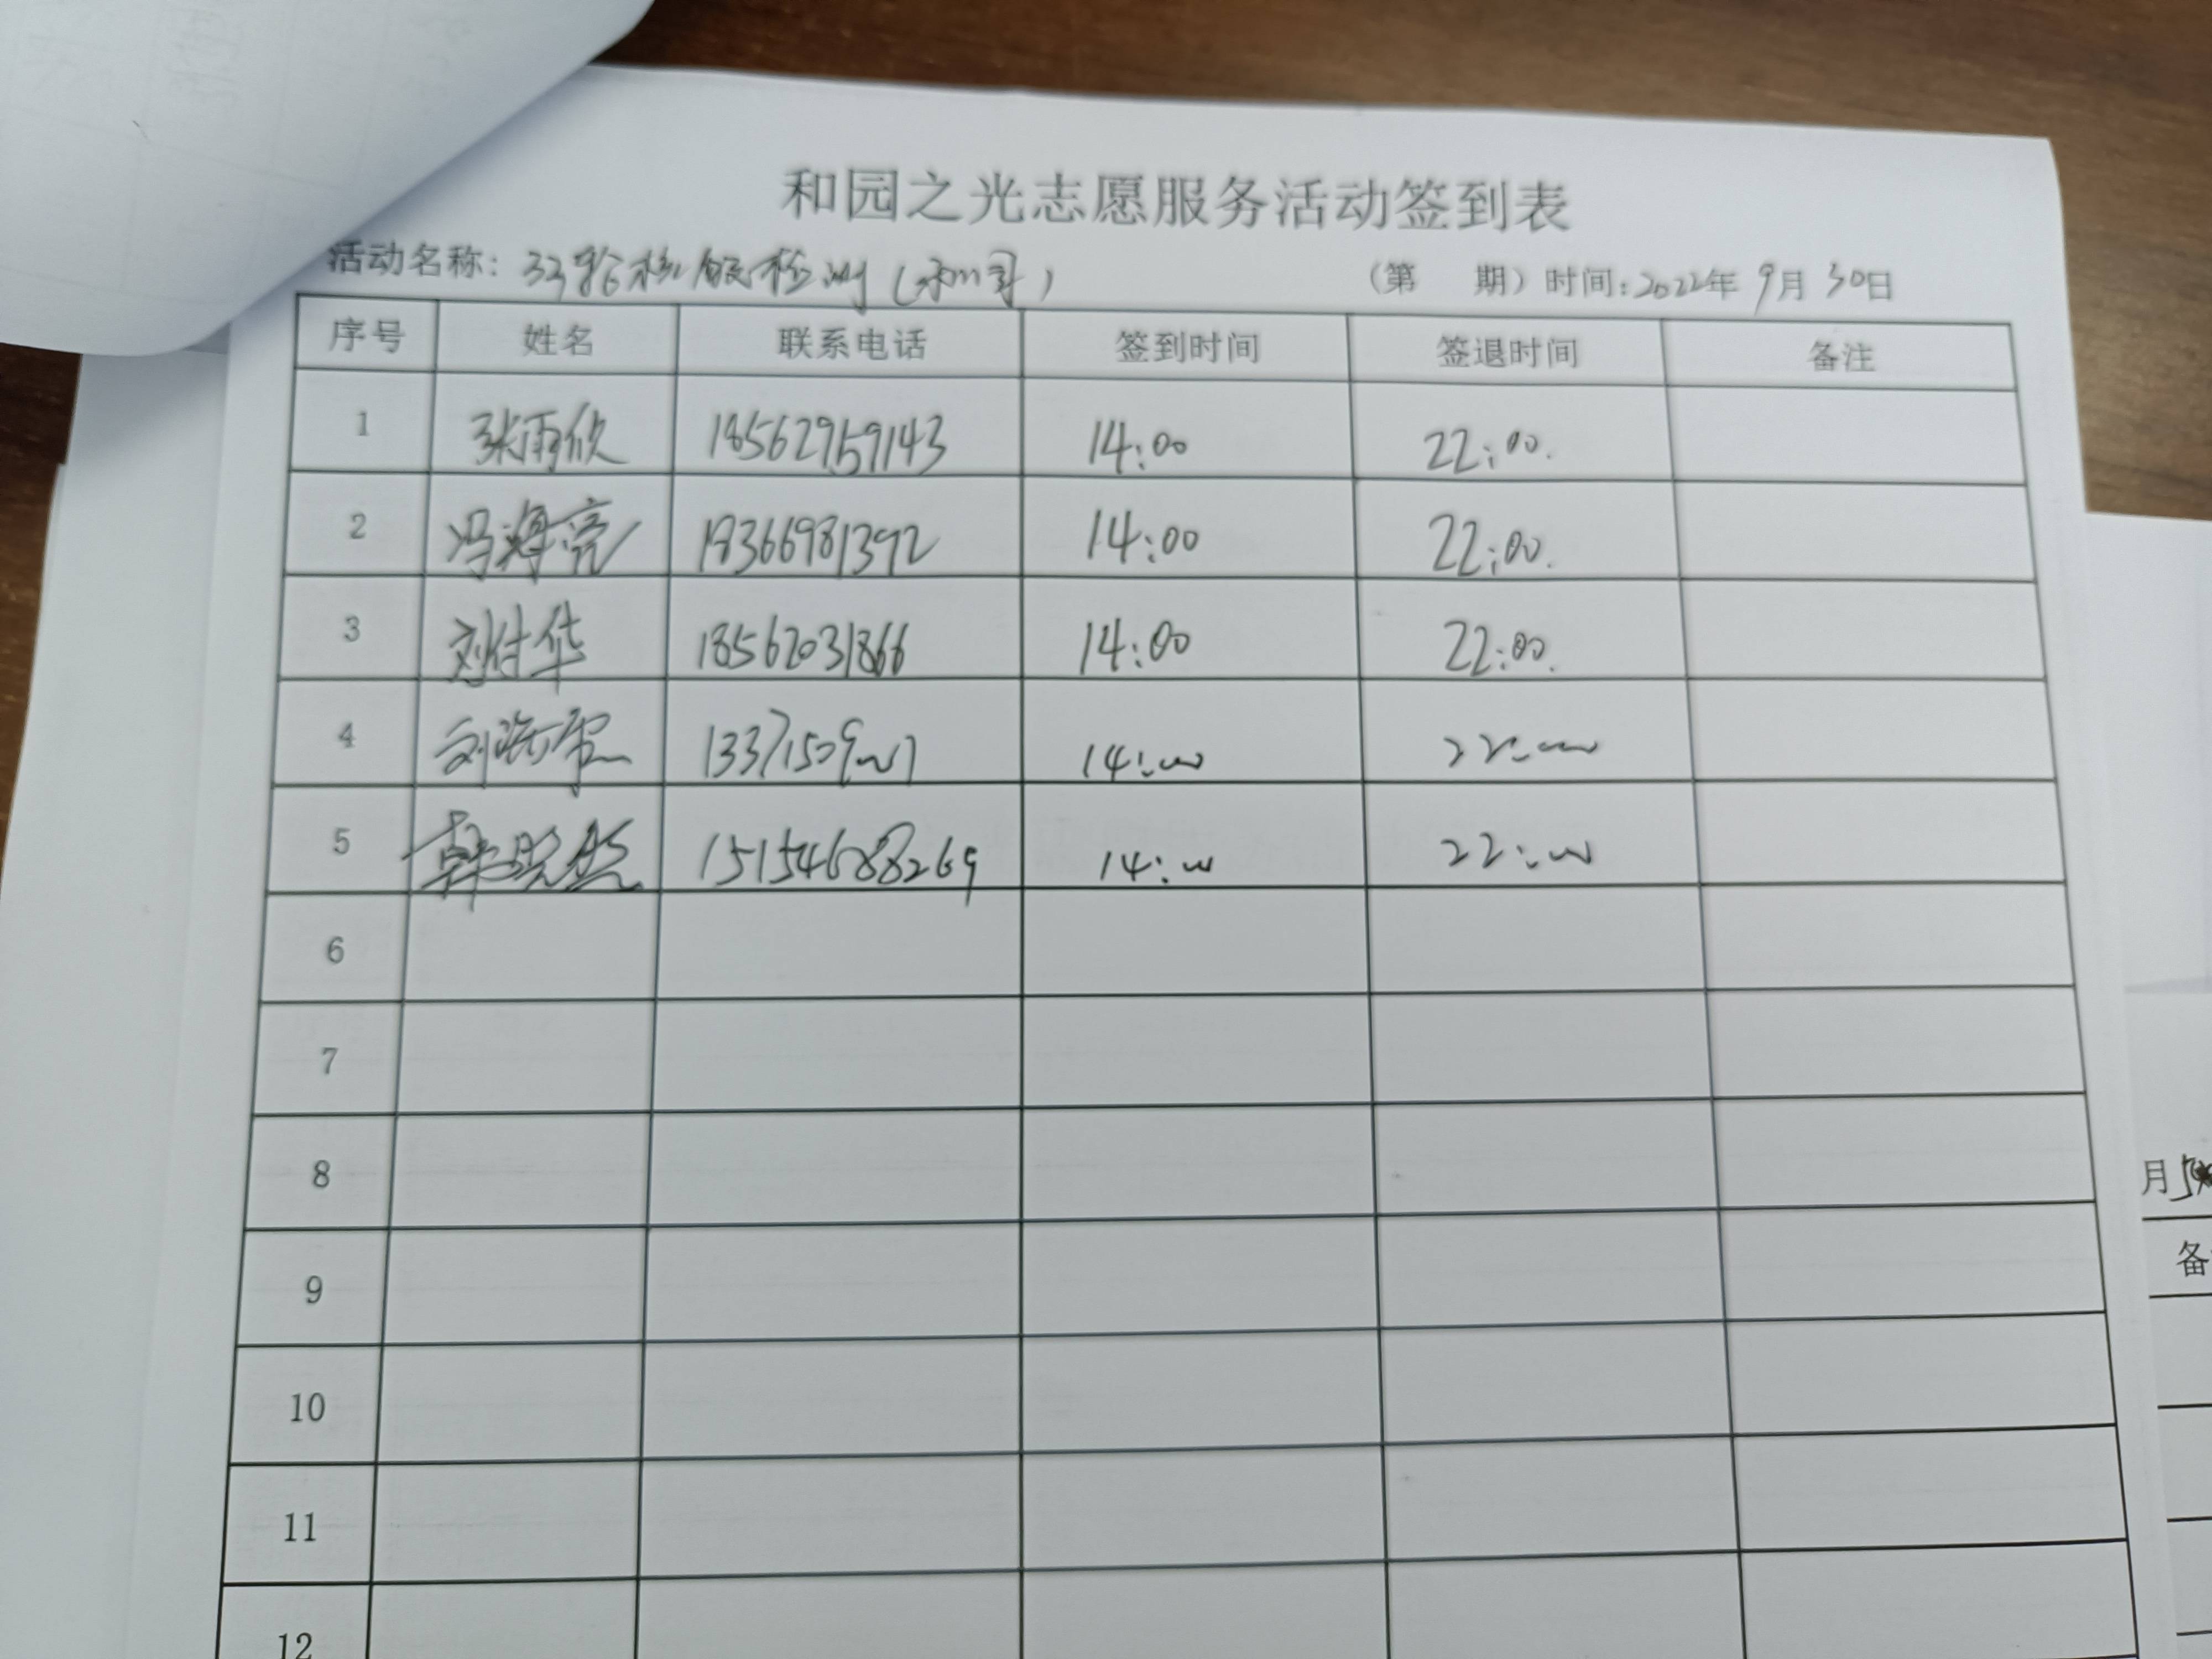 和园之光志愿服务活动签到表
活动名称：33轮核酸检测 （第 期）时间：2022年9月30日
序号 姓名 联系电话 签到时间 签退时间 备注
1 张雨欣 18562959143 14:00 22:00.
2 冯海亮 18366981392 14:00 22:00.
3 刘付华 18562031866 14:00 22:00.
4 刘 14:00 22:00
5 韩 15154688269 14:00 22:00
6
7
8
9
10
11
12
月
备